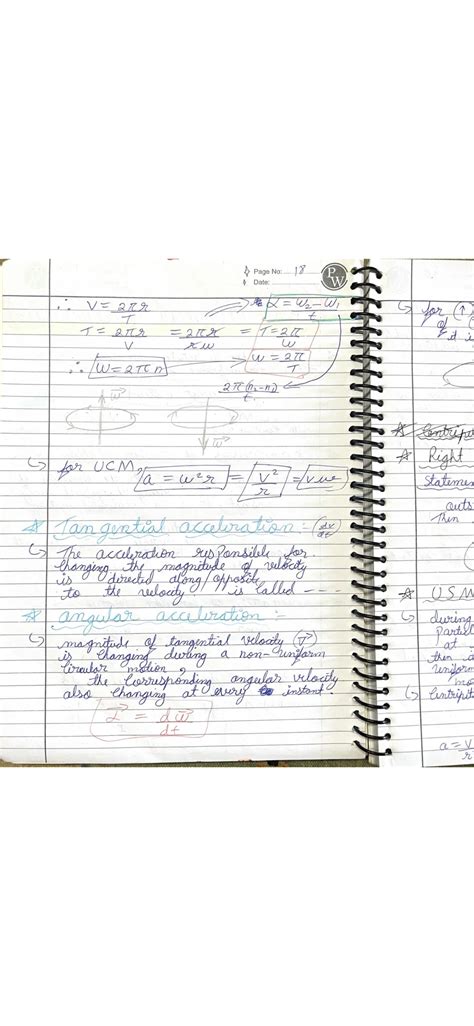 Page No: 18
Date:
PW
∴ V = 2πr/T
α = ω₂ - ω₁/t
T = 2πr/V = 2πr/rω = T = 2π/ω
∴ W = 2πn
ω = 2π/T
2π(n₂-n₁)/t
ω⃗
ω⃗
↪ for UCM, a = ω²r = v²/r = vω
☆ Tangential acceleration :- (dv/dt)
↪ The acceleration responsible for
changing the magnitude of velocity
is directed along/opposite
to the velocity is called ----
☆ angular acceleration :-
↪ magnitude of tangential velocity (v⃗)
is changing during a non-uniform
circular motion,
the corresponding angular velocity
also changing at every instant.
α⃗ = dω⃗/dt
↪ for (↑)
of
☆ Centripe
☆ Right
Statemen
outs
Then
☆ U.S.M
↪ during
Partic
at
then a
uniform
mo
↪ Centript
a = V
r